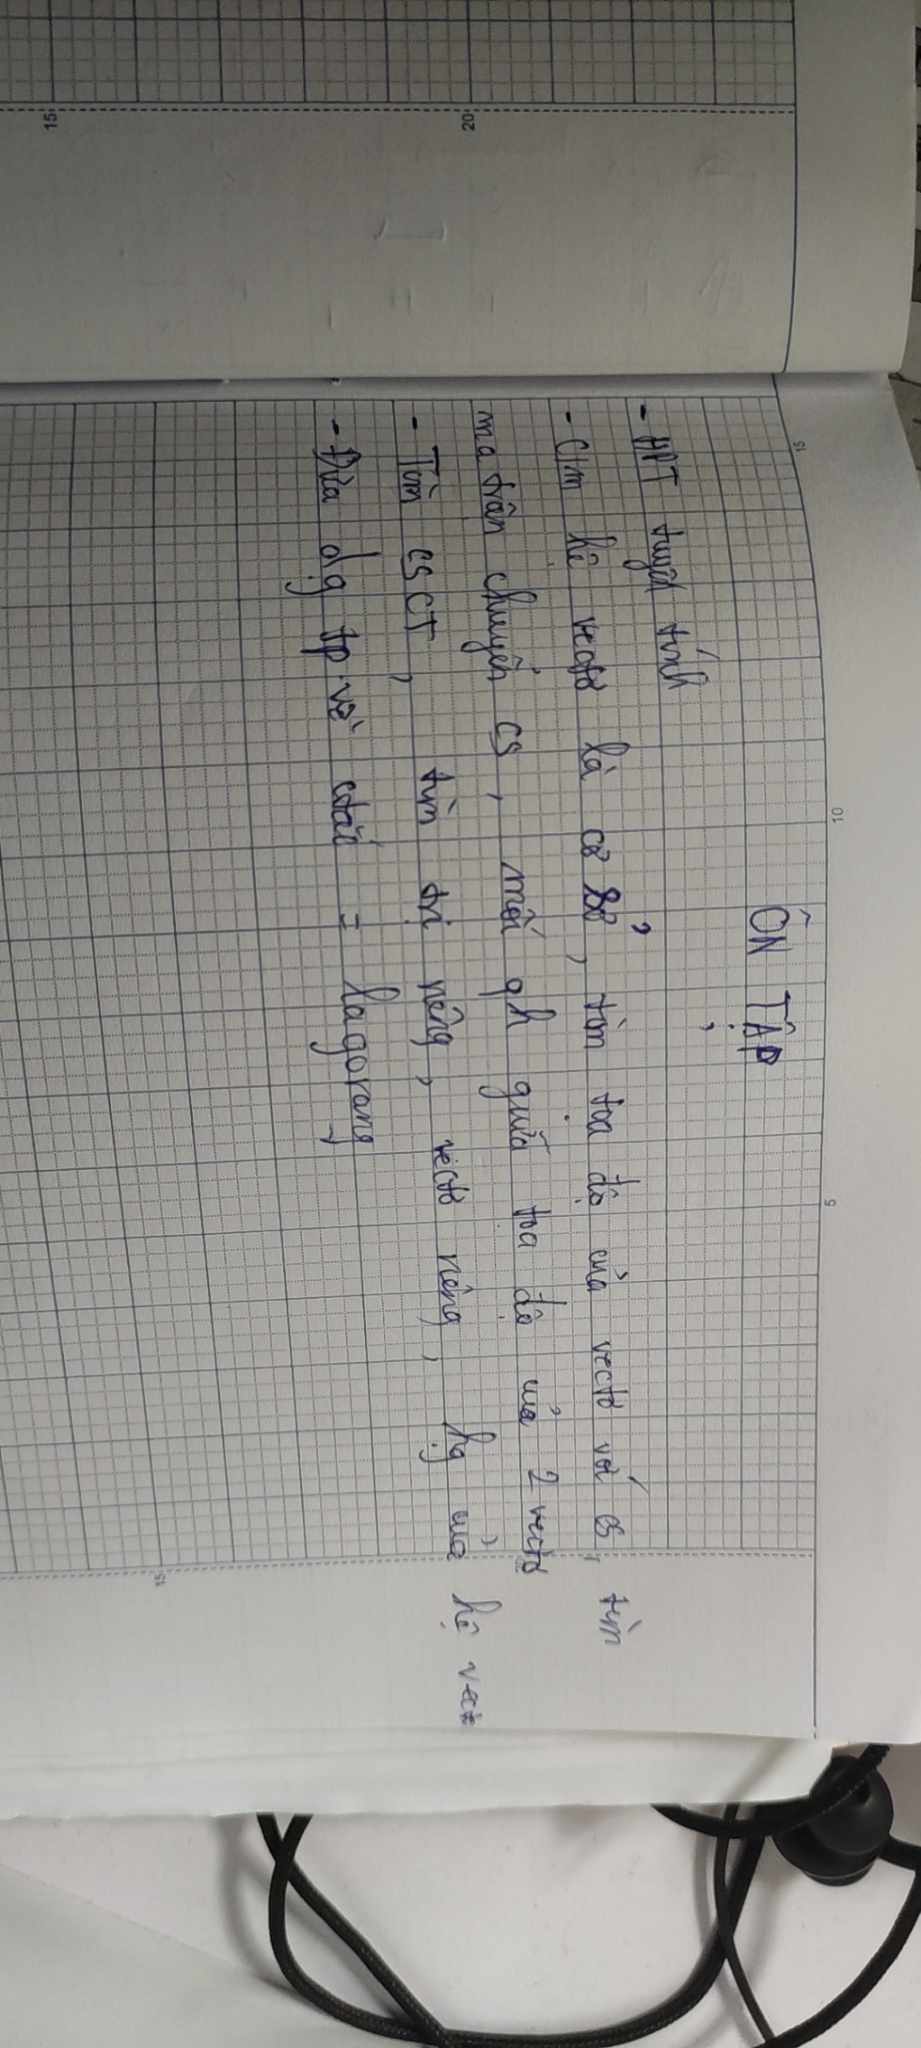 ÔN TẬP
- HPT tuyến tính
- Cm hệ vectơ là cơ sở, tìm tọa độ của vectơ với cs, tìm
ma trận chuyển cs, mối qh giữa tọa độ của 2 vectơ
- Tìm CSCT, tìm trị riêng, vectơ riêng, hạng của hệ vect
- Đưa dg tp về ctắc = lagorang
15
10
5
20
15
15